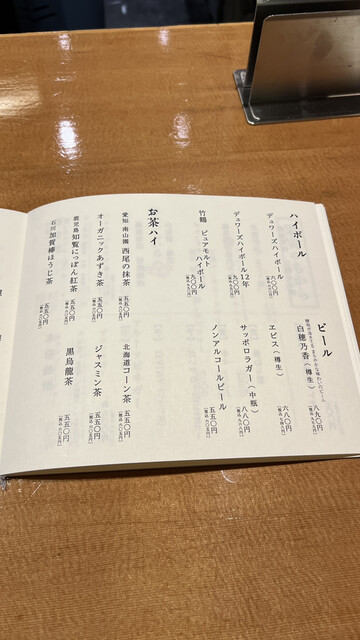 ハイボール
デュワーズハイボール
六〇〇円
デュワーズハイボール12年
九〇〇円
竹鶴 ピュアモルト
ハイボール
九〇〇円
お茶ハイ
愛知 南山園 西尾の抹茶
五五〇円
(税込 六〇五円)
オーガニックあずき茶
五五〇円
(税込 六〇五円)
鹿児島 知覧にっぽん紅茶
五五〇円
(税込 六〇五円)
石川 加賀棒ほうじ茶
五五〇円
(税込 六〇五円)
ビール
白穂乃香(樽生)
八九〇円
(税込 九七九円)
ヱビス(樽生)
六八〇円
(税込 七四八円)
サッポロラガー(中瓶)
八八〇円
(税込 九六八円)
ノンアルコールビール
五五〇円
(税込 六〇五円)
北海道コーン茶
五五〇円
(税込 六〇五円)
ジャスミン茶
五五〇円
(税込 六〇五円)
黒烏龍茶
五五〇円
(税込 六〇五円)